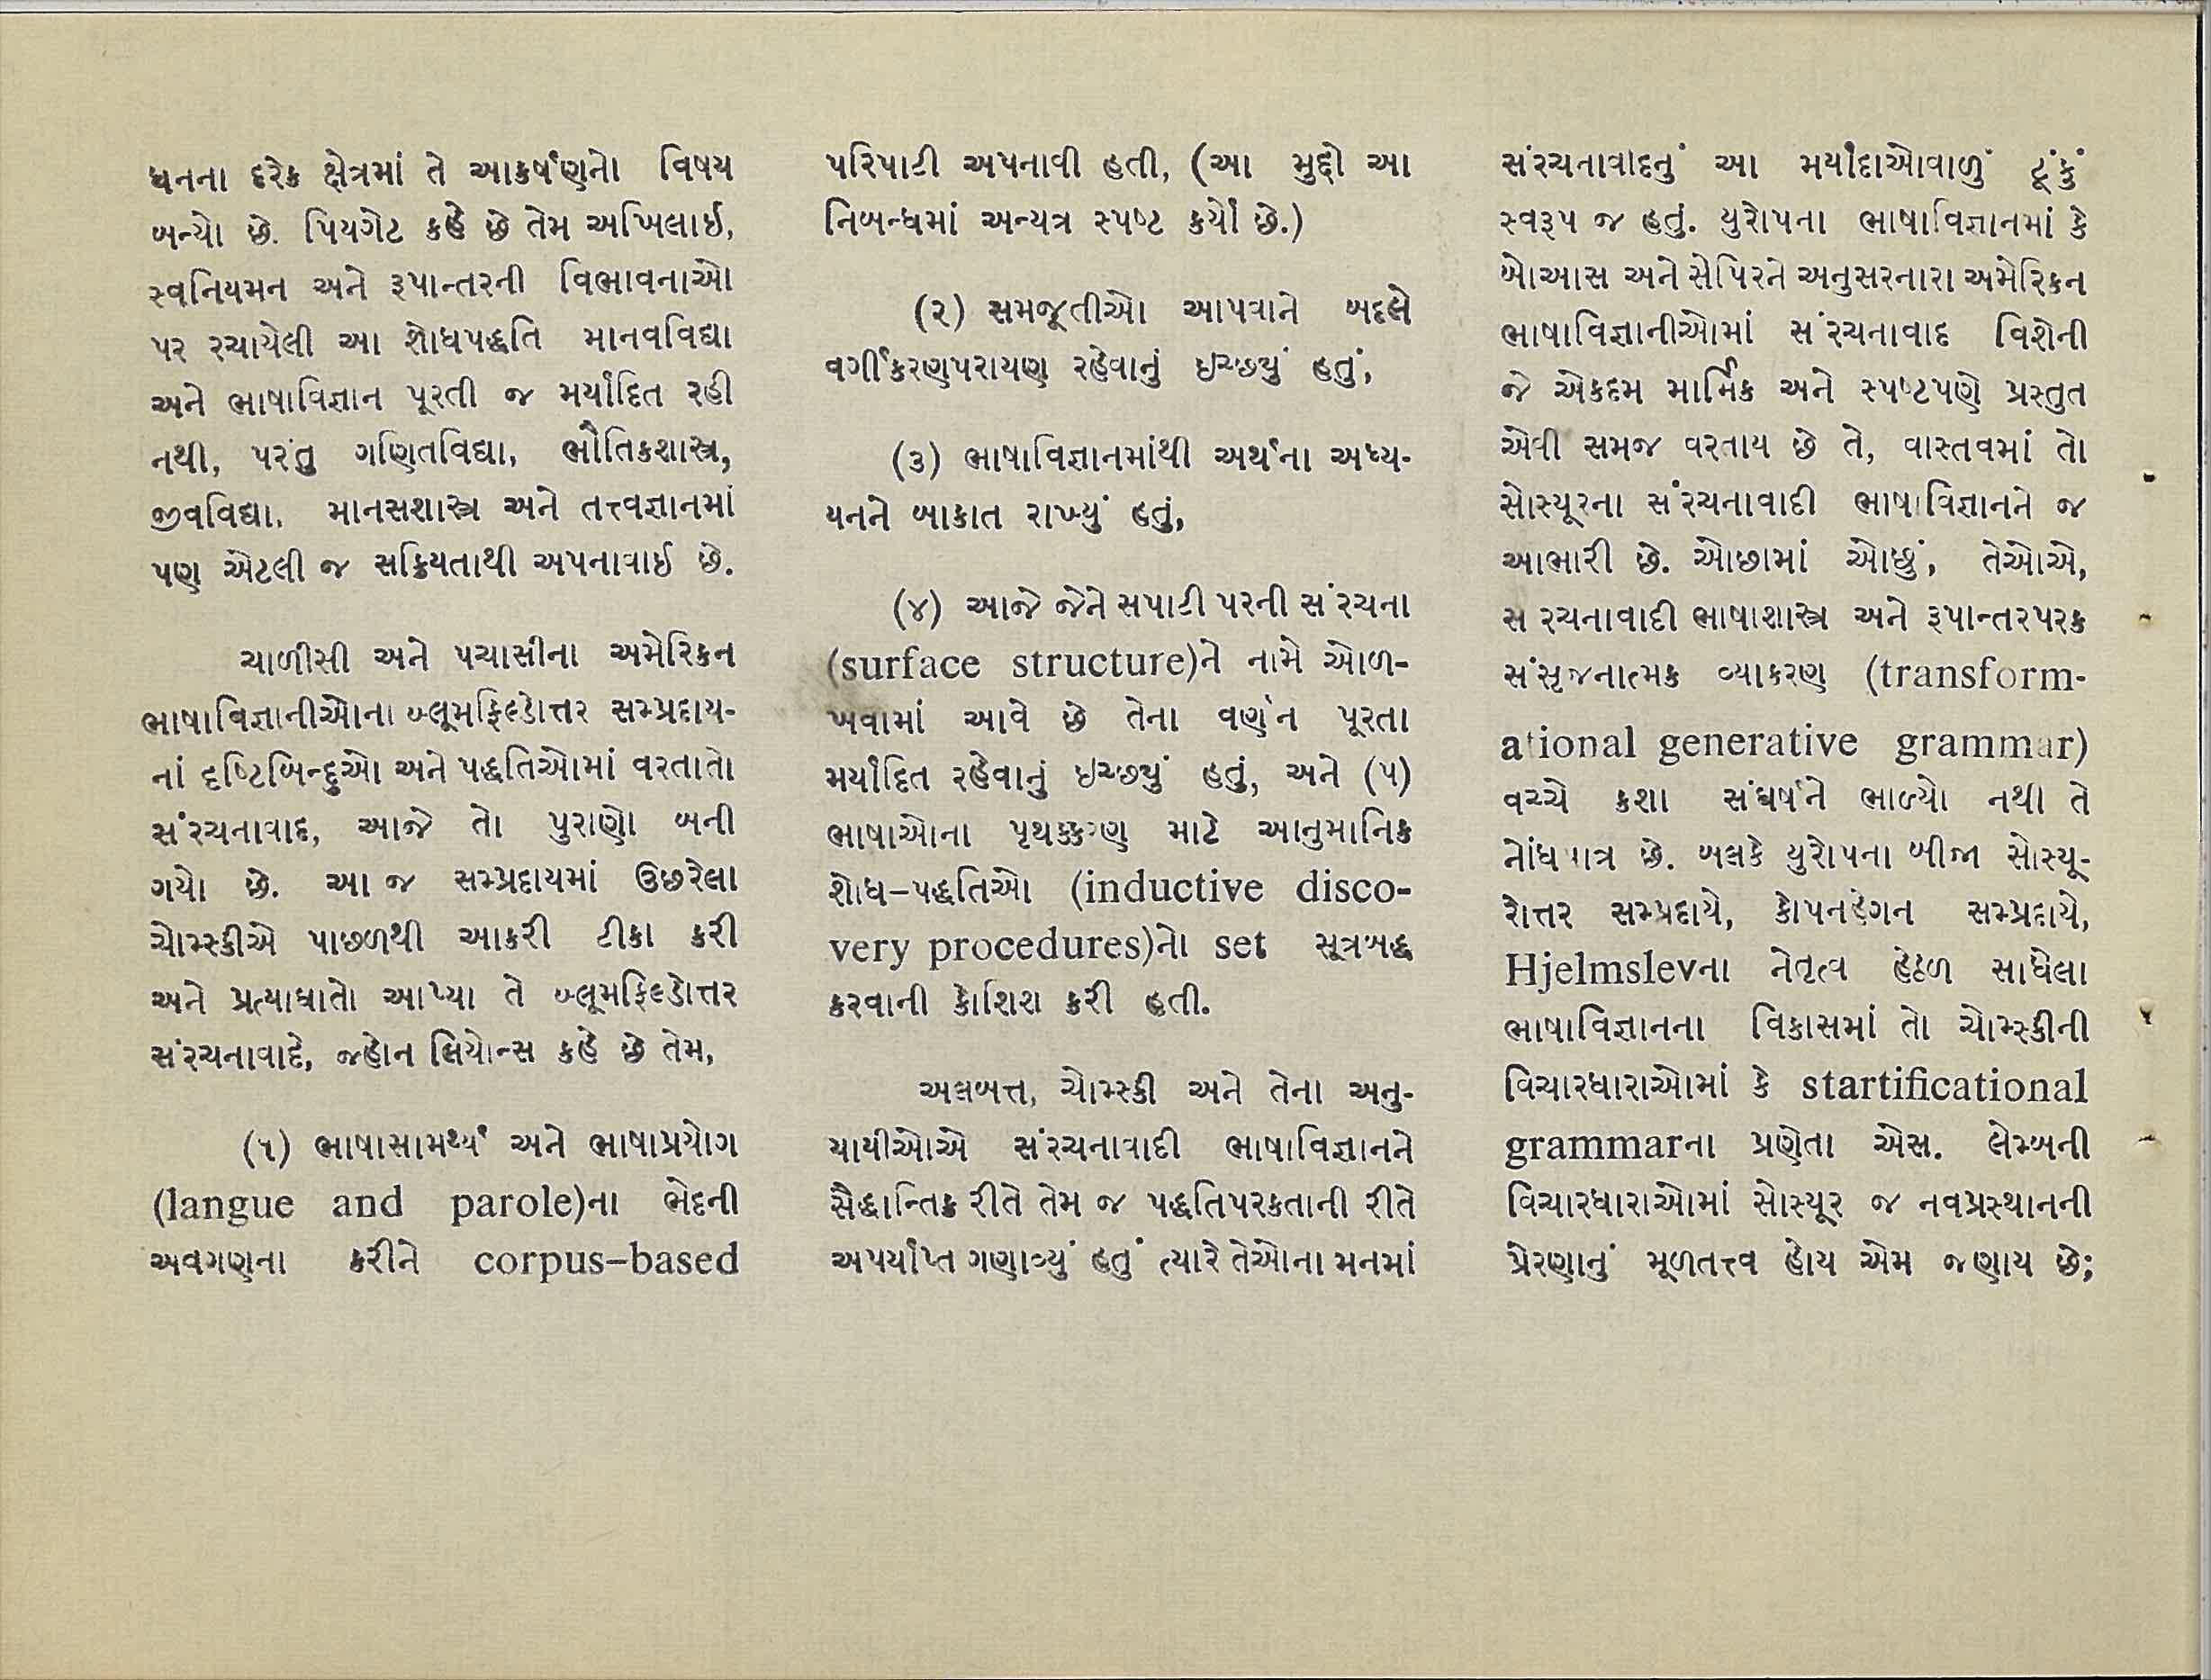 ધનના દરેક ક્ષેત્રમાં તે આકર્ષણનો વિષય
બન્યો છે. પિયગેટ કહે છે તેમ અખિલાઈ,
સ્વનિયમન અને રૂપાન્તરની વિભાવનાઓ
પર રચાયેલી આ શોધપદ્ધતિ માનવવિદ્યા
અને ભાષાવિજ્ઞાન પૂરતી જ મર્યાદિત રહી
નથી, પરંતુ ગણિતવિદ્યા, ભૌતિકશાસ્ત્ર,
જીવવિદ્યા, માનસશાસ્ત્ર અને તત્ત્વજ્ઞાનમાં
પણ એટલી જ સક્રિયતાથી અપનાવાઈ છે.
ચાળીસી અને પચાસીના અમેરિકન
ભાષાવિજ્ઞાનીઓના બ્લૂમફિલ્ડોત્તર સમ્પ્રદાય-
નાં દૃષ્ટિબિન્દુઓ અને પદ્ધતિઓમાં વરતાતો
સંરચનાવાદ, આજે તો પુરાણો બની
ગયો છે. આ જ સમ્પ્રદાયમાં ઉછરેલા
ચોમ્સ્કીએ પાછળથી આકરી ટીકા કરી
અને પ્રત્યાઘાતો આપ્યા તે બ્લૂમફિલ્ડોત્તર
સંરચનાવાદે, જ્હોન લિયોન્સ કહે છે તેમ,
(૧) ભાષાસામર્થ્ય અને ભાષાપ્રયોગ
(langue and parole)ના ભેદની
અવગણના કરીને corpus-based
પરિપાટી અપનાવી હતી, (આ મુદ્દો આ
નિબન્ધમાં અન્યત્ર સ્પષ્ટ કર્યો છે.)
(૨) સમજૂતીઓ આપવાને બદલે
વર્ગીકરણપરાયણ રહેવાનું ઇચ્છ્યું હતું,
(૩) ભાષાવિજ્ઞાનમાંથી અર્થના અધ્ય-
યનને બાકાત રાખ્યું હતું,
(૪) આજે જેને સપાટી પરની સંરચના
(surface structure)ને નામે ઓળ-
ખવામાં આવે છે તેના વર્ણન પૂરતા
મર્યાદિત રહેવાનું ઇચ્છ્યું હતું, અને (૫)
ભાષાઓના પૃથક્કરણ માટે આનુમાનિક
શોધ-પદ્ધતિઓ (inductive disco-
very procedures)નો set સૂત્રબદ્ધ
કરવાની કોશિશ કરી હતી.
અલબત્ત, ચોમ્સ્કી અને તેના અનુ-
યાયીઓએ સંરચનાવાદી ભાષાવિજ્ઞાનને
સૈદ્ધાન્તિક રીતે તેમ જ પદ્ધતિપરકતાની રીતે
અપર્યાપ્ત ગણાવ્યું હતું ત્યારે તેઓના મનમાં
સંરચનાવાદનું આ મર્યાદાઓવાળું ટૂંકું
સ્વરૂપ જ હતું. યુરોપના ભાષાવિજ્ઞાનમાં કે
બોઆસ અને સેપિરને અનુસરનારા અમેરિકન
ભાષાવિજ્ઞાનીઓમાં સંરચનાવાદ વિશેની
જે એકદમ માર્મિક અને સ્પષ્ટપણે પ્રસ્તુત
એવી સમજ વરતાય છે તે, વાસ્તવમાં તો
સોસ્યૂરના સંરચનાવાદી ભાષાવિજ્ઞાનને જ
આભારી છે. ઓછામાં ઓછું, તેઓએ,
સંરચનાવાદી ભાષાશાસ્ત્ર અને રૂપાન્તરપરક
સંસૃજનાત્મક વ્યાકરણ (transform-
ational generative grammar)
વચ્ચે કશા સંઘર્ષને ભાળ્યો નથી તે
નોંધપાત્ર છે. બલકે યુરોપના બીજા સોસ્યૂ-
રોત્તર સમ્પ્રદાયે, કોપનહેગન સમ્પ્રદાયે,
Hjelmslevના નેતૃત્વ હેઠળ સાધેલા
ભાષાવિજ્ઞાનના વિકાસમાં તો ચોમ્સ્કીની
વિચારધારાઓમાં કે startificational
grammarના પ્રણેતા એસ. લેમ્બની
વિચારધારાઓમાં સોસ્યૂર જ નવપ્રસ્થાનની
પ્રેરણાનું મૂળતત્ત્વ હોય એમ જણાય છે;